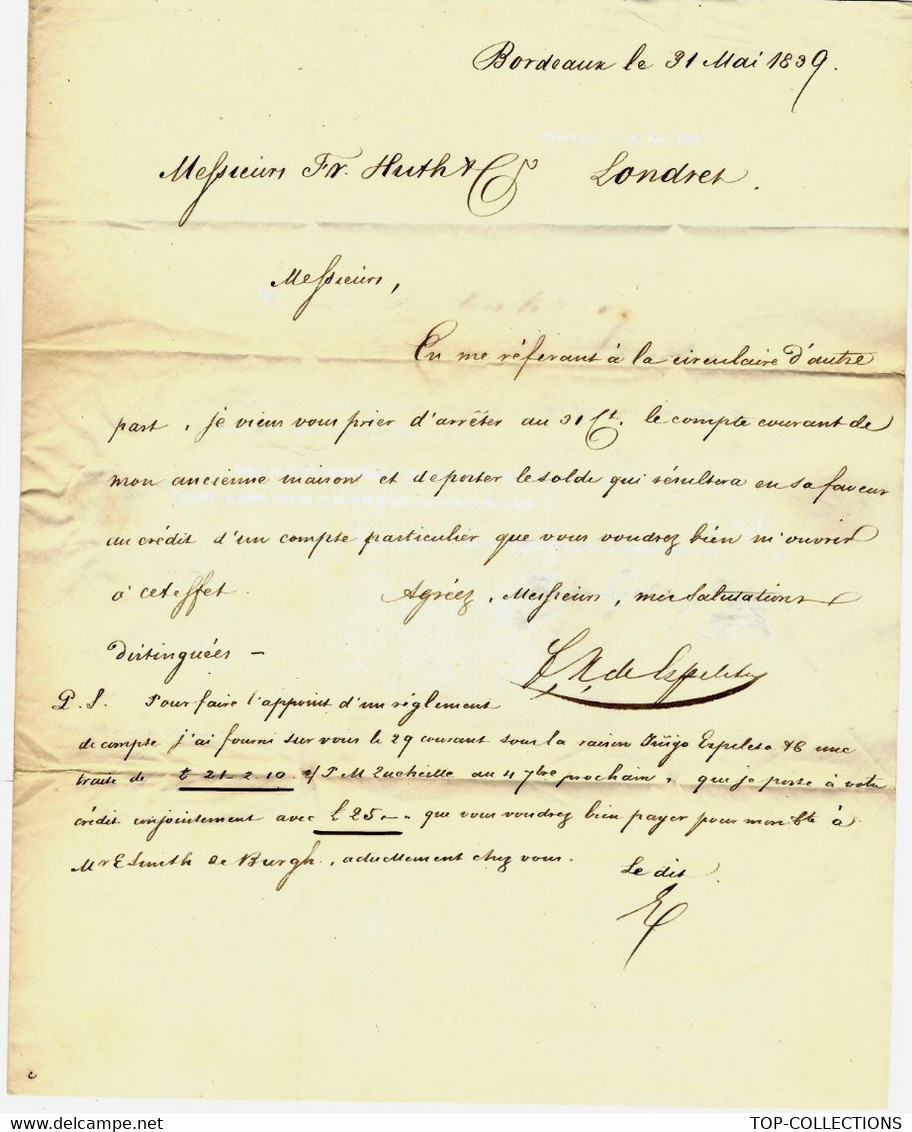 Bordeaux le 31 Mai 1839.
Messieurs Fr. Huth & Co Londres.
Messieurs,
En me référant à la circulaire d'autre
part, je viens vous prier d'arrêter au 31 Ct. le compte courant de
mon ancienne maison et de porter le solde qui résultera en sa faveur
au crédit d'un compte particulier que vous voudrez bien m'ouvrir
à cet effet. Agréez, Messieurs, mes salutations
Distinguées —
de Ezpeleta
P. S. Pour faire l'appoint d'un réglement
de compte j'ai fourni sur vous le 29 courant sous la raison Iñigo Ezpeleta & Co une
traite de £ 21-2-10 au 4 7bre prochain, que je porte à votre
crédit conjointement avec £ 25 — que vous voudrez bien payer pour mon Cte à
Mr E Smith de Burgh, actuellement chez vous.
Le dit
E
c
www.delcampe.net
TOP-COLLECTIONS